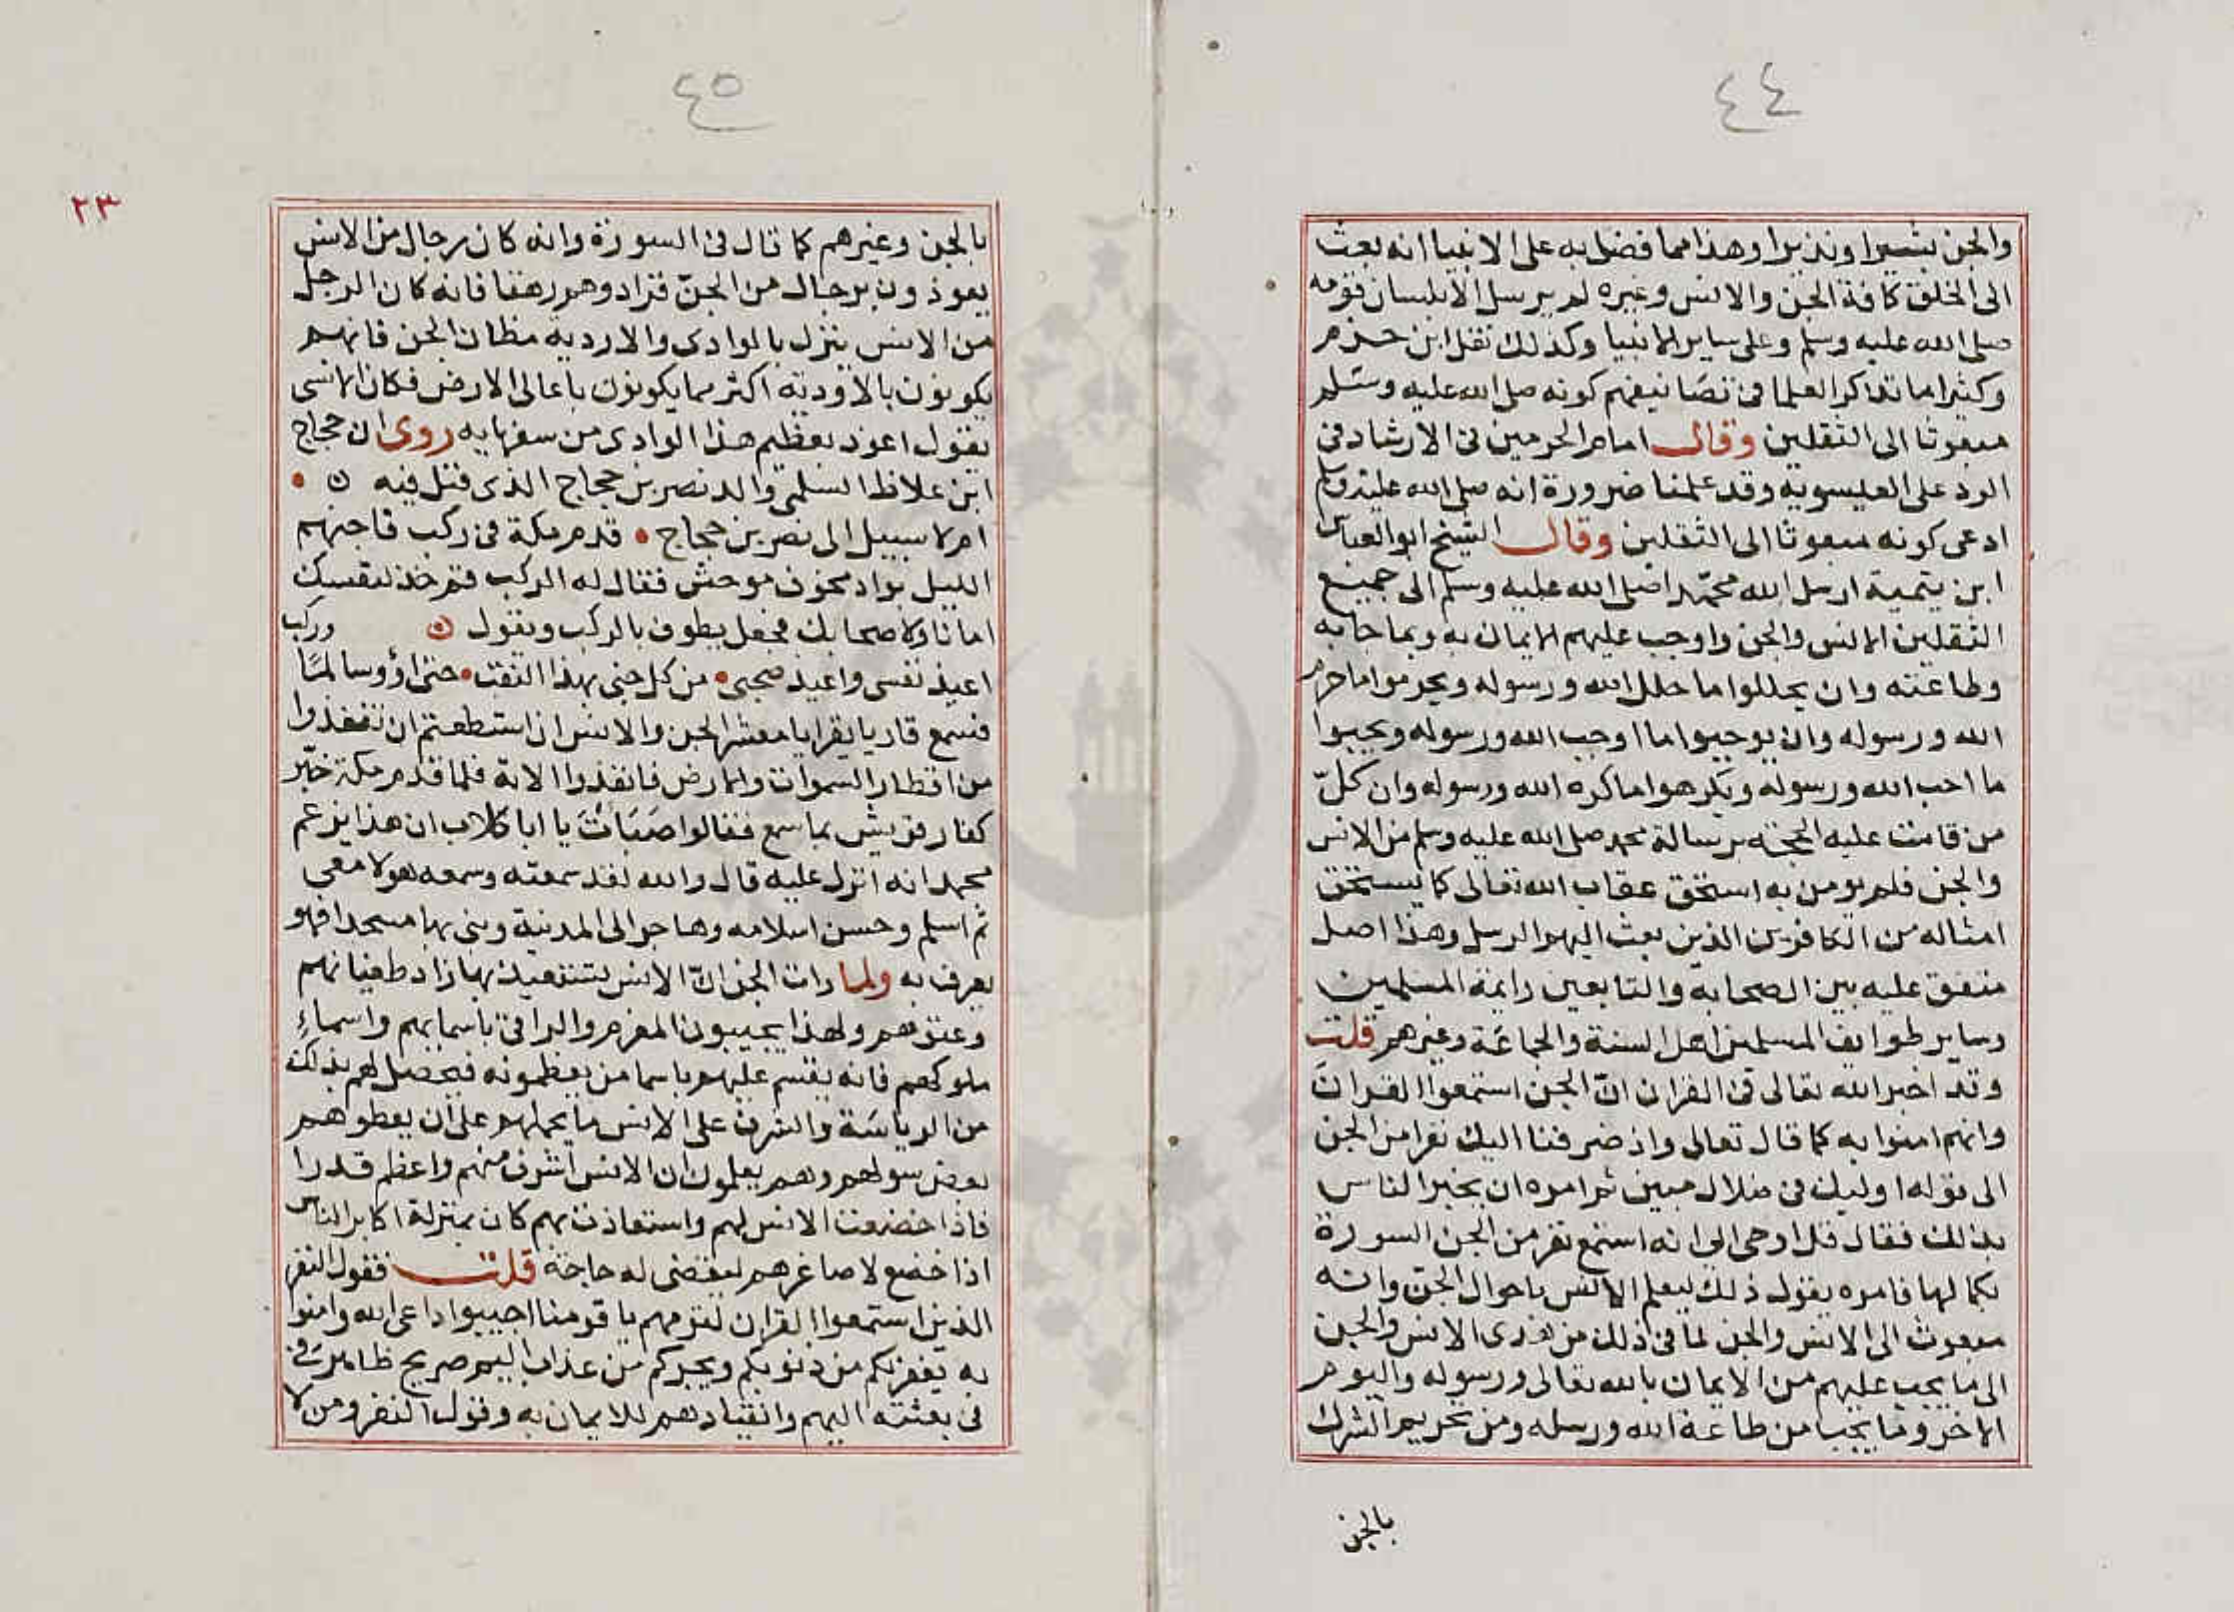 ٤٤
والجن بشيرا ونذيرا وهذا مما فضل به على الانبيا انه بعث
الى الخلق كافة الجن والانس وغيره لم يرسل الا بلسان قومه
صلى الله عليه وسلم وعلى ساير الانبيا وكذلك نقل ابن حزم
وكثيرا ما تذاكر العلما فى تصانيفهم كونه صلى الله عليه وسلم
مبعوثا الى الثقلين وقال امام الحرمين فى الارشاد فى
الرد على العيسويه وقد علمنا ضرورة انه صلى الله عليه وسلم
ادعى كونه مبعوثا الى الثقلين وقال الشيخ ابو العباس
ابن يتمية ارسل الله محمدا صلى الله عليه وسلم الى جميع
الثقلين الانس والجن واوجب عليهم الايمان به وبما جا به
وطاعته وان يحللوا ما حلل الله ورسوله ويحرموا ما حرم
الله ورسوله وان يوجبوا ما اوجب الله ورسوله ويحبوا
ما احب الله ورسوله ويكرهوا ما كره الله ورسوله وان كلّ
من قامت عليه الحجة برسالة محمد صلى الله عليه وسلم من الانس
والجن فلم يومن به استحق عقاب الله تعالى كما يستحق
امثاله من الكافرين الذين بعث اليهم الرسل وهذا اصل
متفق عليه بين الصحابه والتابعين وايمة المسلمين
وساير طوايف المسلمين اهل السنة والجماعة وغيرهم قلت
وقد اخبر الله تعالى فى القران انّ الجن استمعوا القران
وانهم امنوا به كما قال تعالى واذ صرفنا اليك نفرا من الجن
الى قوله اوليك فى ضلال مبين ثم امره ان يخبر الناس
بذلك فقال قل اوحى الى انه استمع نفر من الجن السورة
بكمالها فامره بقول ذلك ليعلم الانس باحوال الجنّ وانه
مبعوث الى الانس والجن لما فى ذلك من هدى الانس والجن
الى ما يجب عليهم من الايمان بالله تعالى ورسوله واليوم
الاخر وما يجب من طاعة الله ورسله ومن تحريم الشرك
بالجن
٤٥
٢٣
بالجن وغيرهم كما قال فى السورة وانه كان رجال من الانس
يعوذون برجال من الجنّ فزادوهم رهقا فانه كان الرجل
من الانس ينزل بالوادى والاردية مظان الجن فانهم
يكونون بالاودية اكثر مما يكونون باعالى الارض فكان الانسى
يقول اعوذ بعظيم هذا الوادى من سفهايه روى ان حجاج
ابن علاط السلمى والد نصر بن حجاج الذى قيل فيه ن
ام لا سبيل الى نصر بن حجاج قدم مكة فى ركب فاجنهم
الليل بواد مخوف موحش فقال له الركب قم خذ لنفسك
امانا ولاصحابك فجعل يطوف بالركب ويقول وركب
اعيذ نفسى واعيذ صحبى من كل جنى بهذا النقب حتى اؤوب سالما
فسمع قاريا يقرا يا معشر الجن والانس ان استطعتم ان تنفذوا
من اقطار السموات والارض فانفذوا الاية فلما قدم مكة خبّر
كفار قريش بما سمع فقالوا صَبَاتَ يا ابا كلاب ان هذا يزعم
محمد انه انزل عليه قال والله لقد سمعته وسمعه هولا معى
ثم اسلم وحسن اسلامه وهاجر الى المدينة وبنى بها مسجدا فهو
يعرف به ولما رات الجن انّ الانس تستعيذ بها زاد طغيانهم
وعتوهم ولهذا يجيبون المعزم والراقى باسمايهم واسماءِ
ملوكهم فانه يقسم عليهم باسما من يعظمونه فيحصل لهم بذلك
من الرياسة والشرف على الانس ما يحملهم على ان يعطوهم
بعض سولهم وهم يعلمون ان الانس اشرف منهم واعظم قدرا
فاذا خضعت الانس لهم واستعاذت بهم كان بمنزلة اكابر الناس
اذا خضع لاصاغرهم ليقضى له حاجة قلت فقول النفر
الذين استمعوا القران لقومهم يا قومنا اجيبوا داعى الله وامنوا
به يغفر لكم من ذنوبكم ويجركم من عذاب اليم صريح ظاهر
فى بعثته اليهم وانقيادهم للايمان به وقول النفر ومن لا